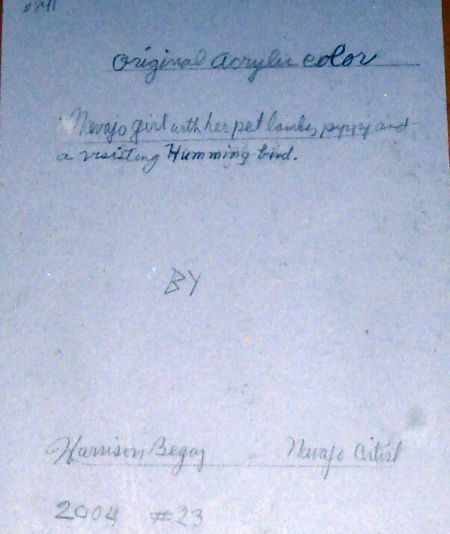 original Acrylic color
Navajo girl with her pet lambs, puppy and
a visisting Humming bird.
BY
Harrison Begay Navajo Artist
2004 #23